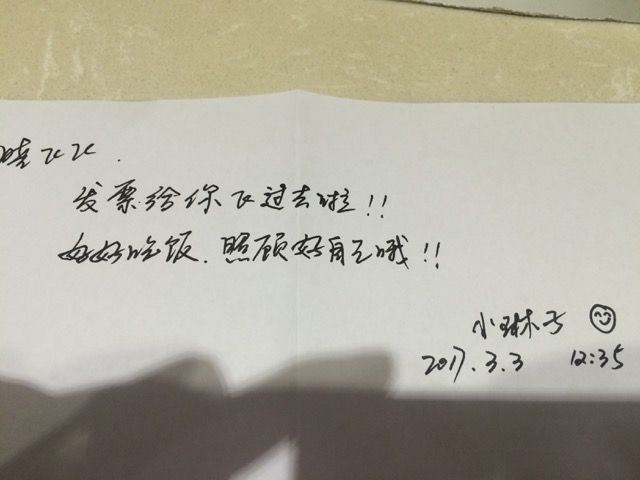 晓飞飞.
发票给你飞过去啦!!
好好吃饭.照顾好自己哦!!
小琳子
2017.3.3 12:35